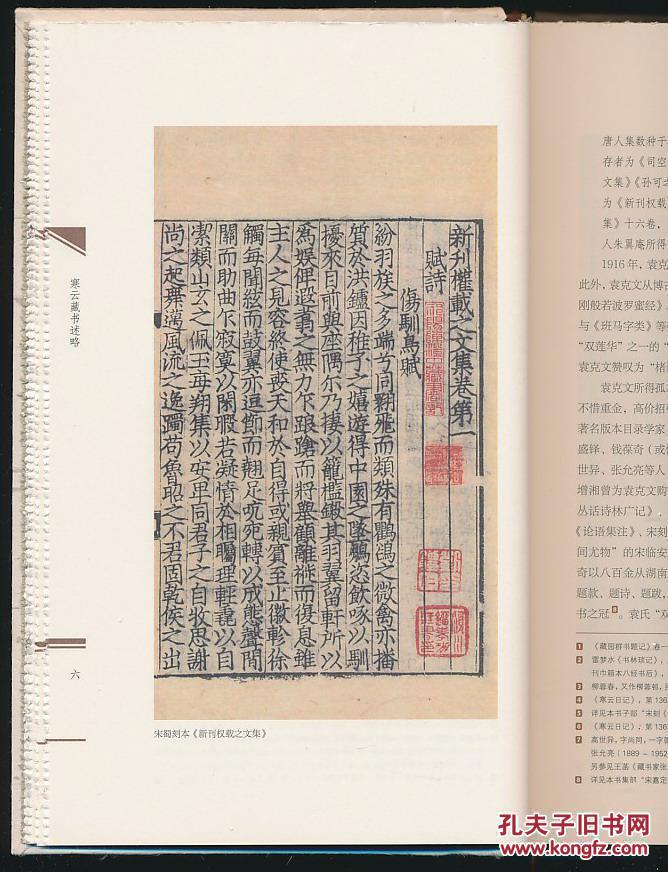 新刊權載之文集卷第一
賦詩
傷馴鳥賦
紛羽族之多端兮同翾飛而類殊有鸜鵒之微禽亦播
質於洪鑪因稚子之嬉遊得中園之墜鷇恣飲啄以馴
擾來目前與座隅尔乃接以籠檻鎩其羽翼留軒所以
爲娛俾遐翥之無力乍踉蹌而將舉顧離褷而復息雖
主人之見容終使喪天和於自得或親賓至止徽軫徐
觸每聞絃而鼓翼亦迴節而翹足吭死轉以成態聲間
關而助曲乍寂寞以閑暇若凝情於相矚理輕毳以自
潔類山玄之佩玉每翔集以安卑同君子之自牧思謝
尚之起舞邁風流之逸躅苟魯昭之不君固乾侯之出
宋蜀刻本《新刊权载之文集》
寒云藏书述略
六
唐人集数种子
存者为《司空
文集》《孙可之
为《新刊权载
集》十六卷,
人朱翼庵所得
1916年,袁克
此外,袁克文从博古
刚般若波罗蜜经》、
与《班马字类》等
“双莲华”之一的“
袁克文赞叹为“楮
袁克文所得孤
不惜重金,高价招
著名版本目录学家
盛铎、钱葆奇(或
世异、张允亮等人
增湘曾为袁克文购
丛话诗林广记》,
《论语集注》、宋刻
间尤物”的宋临安
奇以八百金从湖南
题款、题诗、题跋,
书之冠8。袁氏“双
1 《藏园群书题记》卷一
2 雷梦水《书林琐记》,
刊巾箱本八经书后),
3 柳蓉春,又作柳蓉邨,
4 《寒云日记》,第136
5 详见本书子部“宋刻《
6 《寒云日记》,第136
7 高世异,字尚同,一字
张允亮(1889-1952
另参见王菡《藏书家张
8 详见本书集部“宋嘉定
孔夫子旧书网
www.kongfz.com